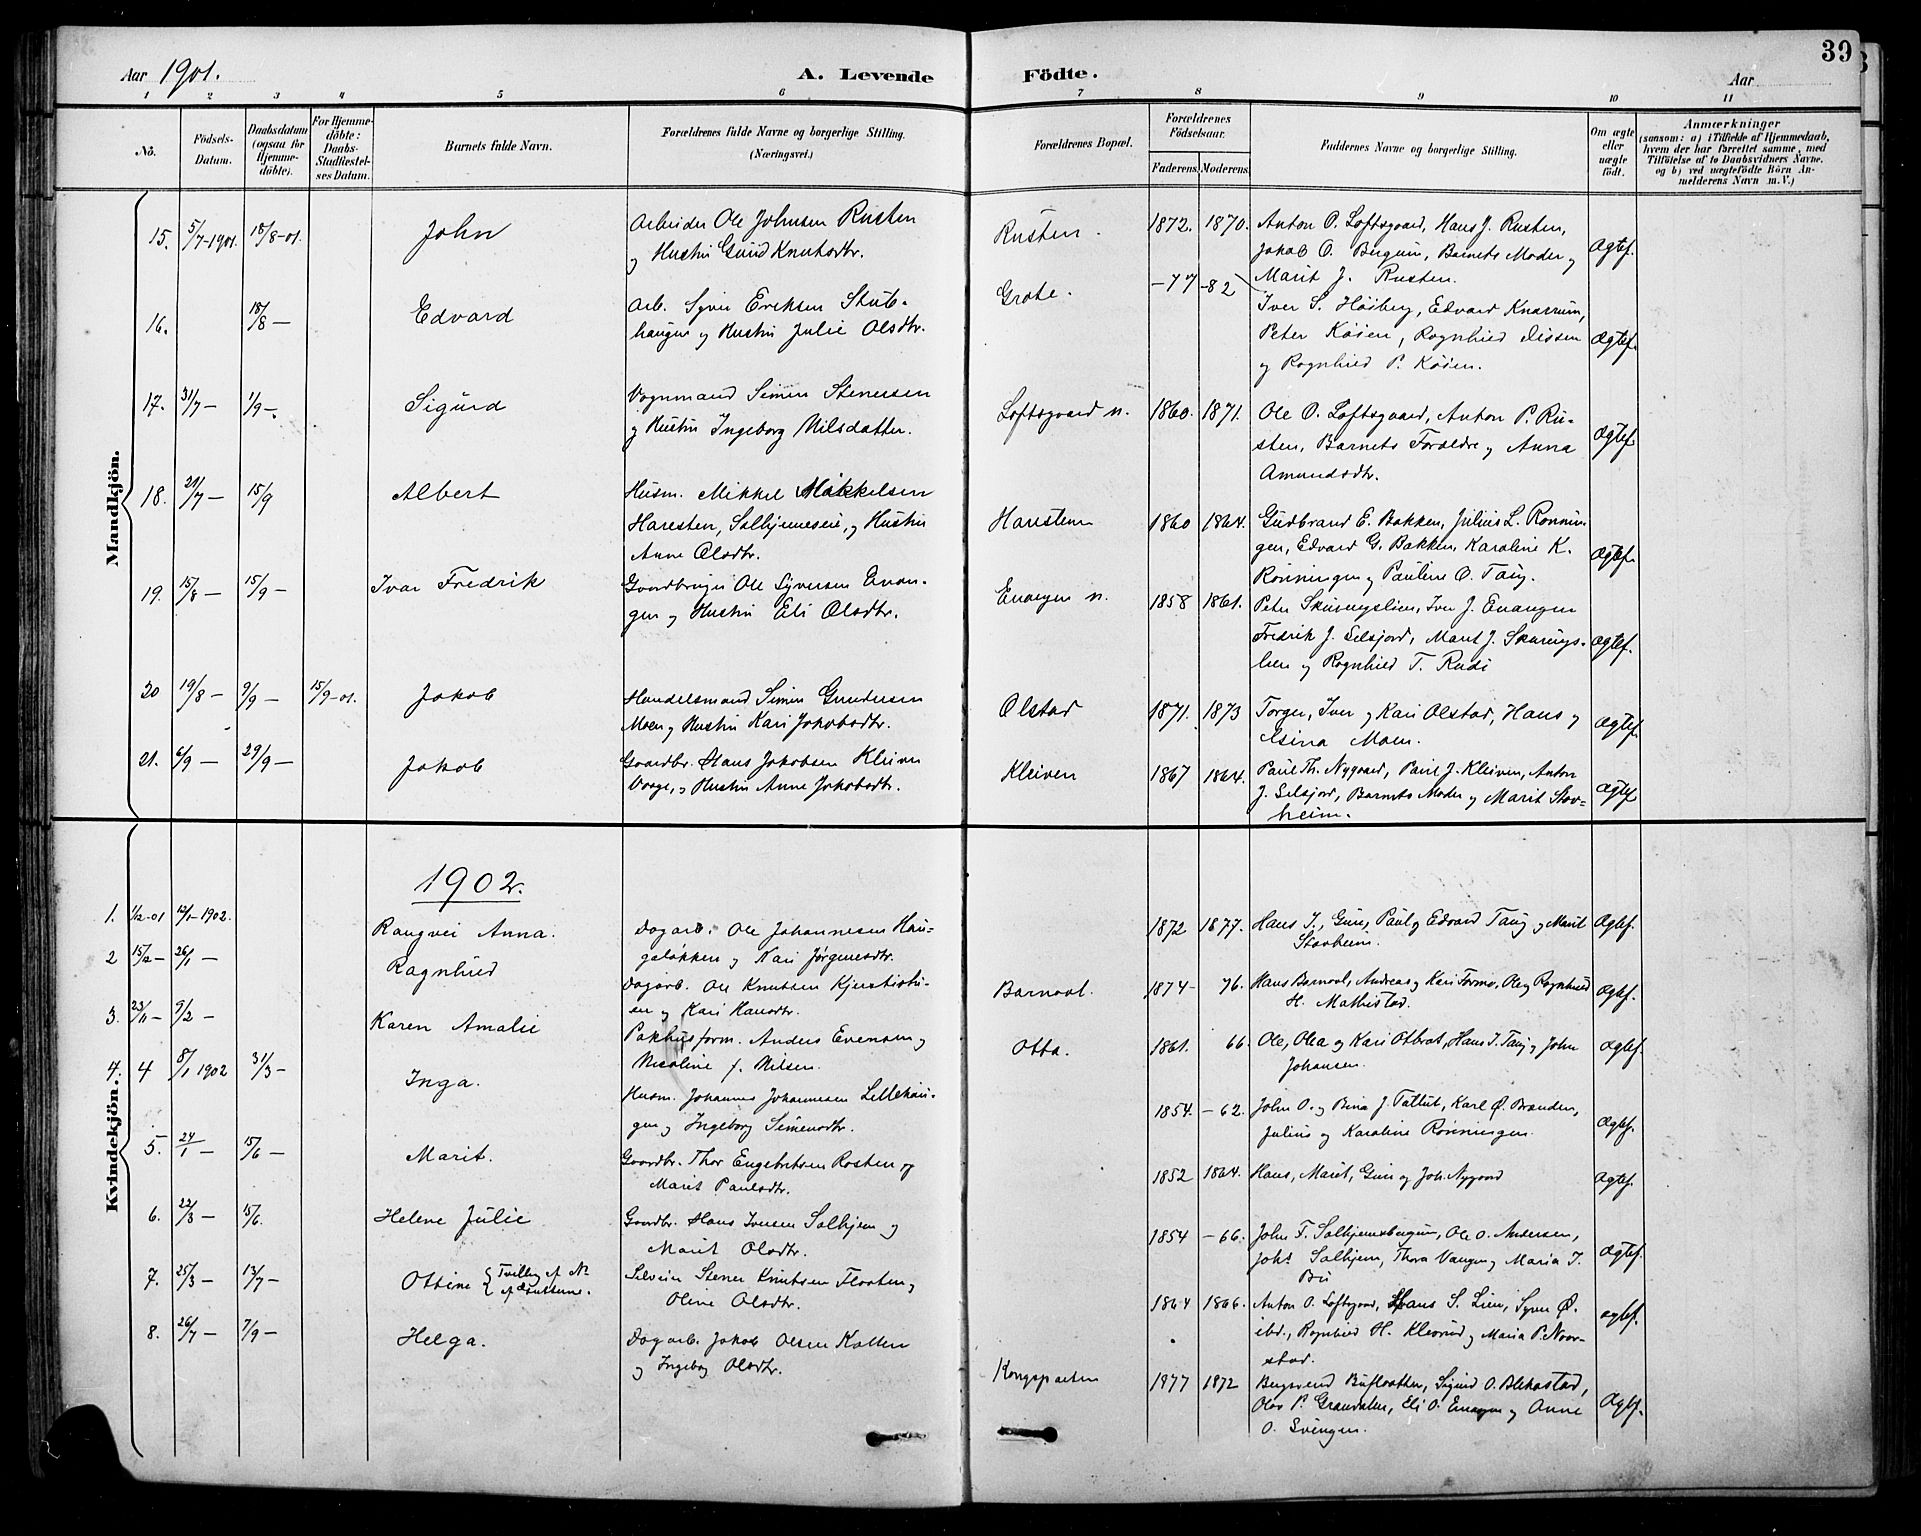 39
Aar 1901. A. Levende Födte. Aar
1 2 3 4 5 6 7 8 9 10 11
No. Födsels-Datum. Daabsdatum (ogsaa for Hjemmedöbte). For Hjemmedöbte: Daabs-Stadfæstelses Datum. Barnets fulde Navn. Forældrenes fulde Navne og borgerlige Stilling. (Næringsvei.) Forældrenes Bopæl. Forældrenes Födselsaar. Faderens. Moderens. Faddernes Navne og borgerlige Stilling. Om ægte eller uægte födt. Anmærkninger
(saasom: a) i Tilfælde af Hjemmedaab, hvem der har forrettet samme, med Tilföielse af to Daabsvidners Navne. og b) ved uægtefödte Börn Anmelderens Navn m. V.)
Mandkjön.
15. 5/7-1901. 18/8-01. John Arbeider Ole Johnsen Rusten
og Hustru Guri Knutsdtr. Rusten. 1872. 1870. Anton O. Loftsgaard, Hans J. Rusten,
Jakob O. Bergum, Barnets Moder og
Marit J. Rusten. Ægtef.
16. 18/8 — Edvard Arb. Syver Eriksen Stub-
haugen og Hustru Julie Olsdtr. Grote. -77 -82 Iver S. Höiberg, Edvard Knarrum,
Peter Köien, Rognhild Dissen
og Rognhild P. Köien. Ægtef.
17. 31/7 — 1/9 -. Sigurd Vognmand Simen Stenersen
og Hustru Ingeborg Nilsdatter. Loftsgaard n. 1860. 1871. Ole O. Loftsgaard, Anton P. Ru-
sten, Barnets Forældre og Anna
Amundsdtr. Ægtef
18. 21/7 — 15/9 Albert Husm. Mikkel Mikkelsen
Haresten, Solhjemseie, og Hustru
Anne Olsdtr. Haresten 1860 1864. Gudbrand E. Bakken, Julius L. Rönnin
gen, Edvard G. Bakken, Karoline K.
Rönningen og Pauline O. Taug. Ægtef.
19. 15/8 — 15/9 — Ivar Fredrik Gaardbruger Ole Syversen Enan-
gen og Hustru Eli Olsdtr. Enangen n. 1858 1861. Peter Skuringslien, Iver J. Enangen
Fredrik J. Selsjord, Marit J. Skurings-
lien og Rognhild T. Rudi Ægtef.
20 19/8 — 9/9 — 15/9-01. Jakob Handelsmand Simen Gundersen
Moen og Hustru Kari Jakobsdtr. Olstad 1871. 1873 Torger, Iver og Kari Olstad, Hans og
Moen. Ægtef.
21. 6/9 — 29/9 — Jakob Gaardbr. Hans Jakobsen Kleiven
Vaage, og Hustru Anne Jakobsdtr. Kleiven 1867 1864. Paul Th. Nygaard, Paul J. Kleiven, Anton
J. Selsjord, Barnets Moder og Marit Stav-
heim. Ægtef
Kvindekjön.
1902.
1. 1/12-01 12/1-1902. Rangvei Anna. Dagarb. Ole Johannesen Hau-
gsløkken og Kari Jørgensdtr. 1872 1877. Hans T., Guri, Paul og Edvard Taug og Marit
Stavheim. Ægtef.
2 15/12 — 26/1 — Ragnhild Dagarb. Ole Knutsen
og Kari Hansdtr. Barnaal. 1874 - 76. Hans Barnaal, Andreas og Kari Formo, Ole og Rognhild
H. Mathistad. Ægtef.
3. 23/11 — 9/2 — Karen Amalie Pakhusform. Anders Evensen og
Nicoline f. Nilsen. Otta. 1861. 66. Ole, Olea og Kari Otbrat, Hans T. Taug og John
Johansen. Ægtef.
4. 4 8/1 1902 31/3 — Inga. Husm. Johannes Johannesen Lillehau-
gen og Ingeborg Simensdtr. 1854. - 62. John O. og Bina J. Tallut, Karl Ø. Brænden,
Julius og Karoline Rönningen. Ægtef.
5. 24/1 — 15/6 — Marit. Gaardbr. Thor Engebritsen Rosten og
Marit Paulsdtr. 1852 1864. Hans, Marit, Guri og Joh. Nygaard Ægtef.
6. 22/3 — 15/6. Helene Julie Gaardbr. Hans Iversen Solhjem og
Marit Olsdtr. 1854 - 66. John F. Solhjemsbergum, Ole O. Andersen,
Johs Solhjem, Thora Vangen og Maria I.
Bu Ægtef.
7. 25/3 — 13/7 — Ottine { Tvilling af No Selveier Stener Knutsen Floaten og
Oline Olsdtr. 1864 1866. Anton O. Loftsgaard, Hans S. Lien, Syver Ø.
ibd., Rognhild H. Kleivrud og Maria P. Noor-
stad. Ægtef.
8. 26/7 — 7/9 — Helga. Dagarb. Jakob Olsen Kollen
og Ingeborg Olsdtr. Kongsparten 1877 1872 Bergsvend Bufloatten, Sigurd O. Blekastad,
Olav P. Grandalen, Eli O. Enangen og Anne
O. Svingen. Ægtef.